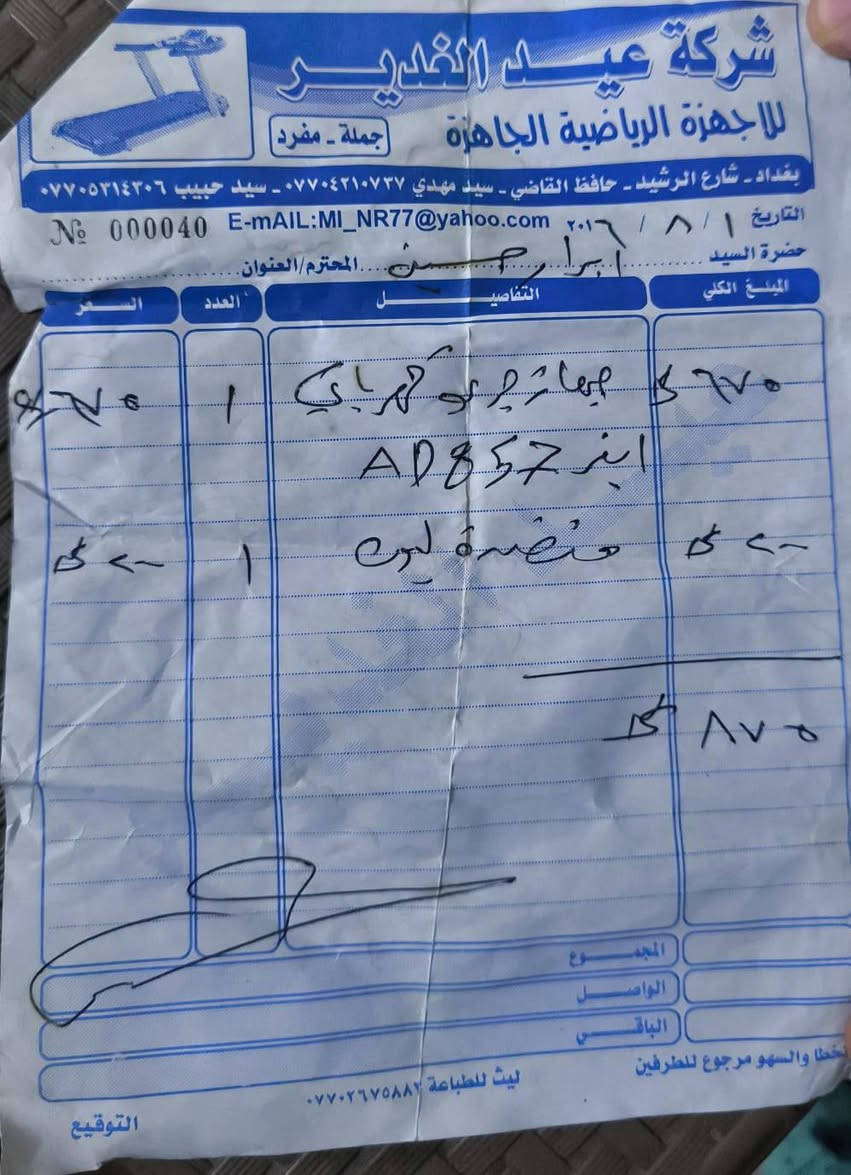 شركة عيد الغدير
للاجهزة الرياضية الجاهزة
جملة - مفرد
بغداد - شارع الرشيد - حافظ القاضي - سيد مهدي ٠٧٧٠٤٢١٠٧٣٧ - سيد حبيب ٠٧٧٠٥٣١٤٣٠٦
التاريخ ١ / ٨ / ٢٠١٦ E-mAIL:MI_NR77@yahoo.com № 000040
حضرة السيد ابرار حسين المحترم/العنوان
المبلغ الكلي التفاصيل العدد السعر
$ ٦٧٠ جهاز جري كهربائي ١ $ ٦٧٠
AD 857
$ ٢٠٠ منضدة ١ $ ٢٠٠
$ ٨٧٠
المجموع
الواصل
الباقي
الخطا والسهو مرجوع للطرفين
ليث للطباعة ٠٧٧٠٢٦٧٥٨٨٢
التوقيع